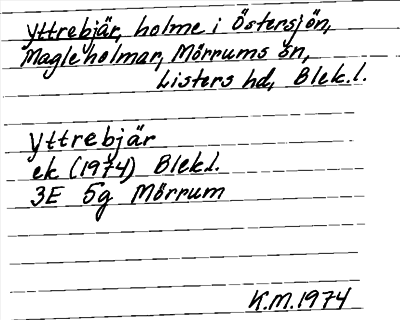 Yttrebjär, holme i Östersjön,
Magleholmar, Mörrums sn,
Listers hd, Blek.l.
Yttrebjär
ek (1974) Blek.l.
3E 5g Mörrum
K.M.1974